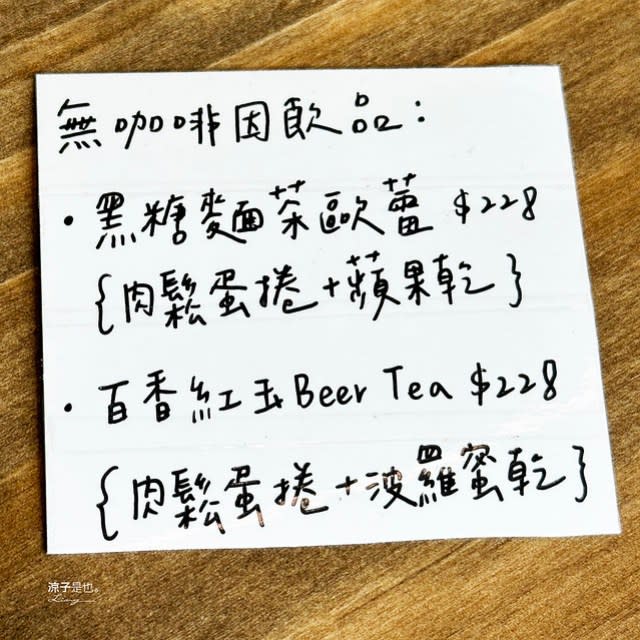 無咖啡因飲品:
・黑糖麵茶歐蕾 $228
{肉鬆蛋捲+蘋果乾}
・百香紅玉Beer Tea $228
{肉鬆蛋捲+波羅蜜乾}
涼子是也。